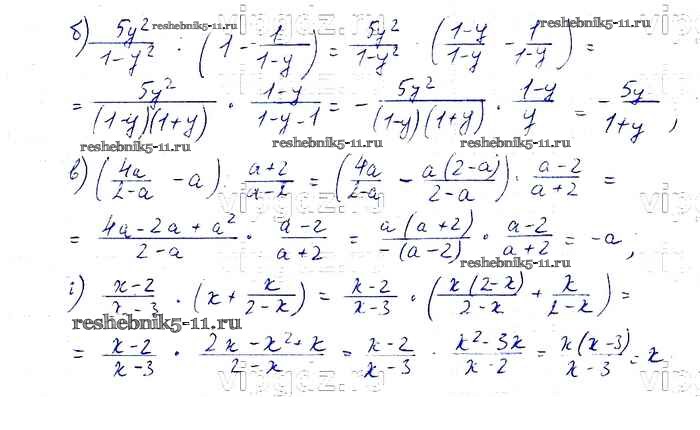 reshebnik5-11.ru
б) 5y²/(1-y²) : (1 - 1/(1-y)) = 5y²/(1-y²) : ((1-y)/(1-y) - 1/(1-y)) =
= 5y²/((1-y)(1+y)) · (1-y)/(1-y-1) = - 5y²/((1-y)(1+y)) · (1-y)/y = - 5y/(1+y) ;
reshebnik5-11.ru reshebnik5-11.ru
в) (4a/(2-a) - a) : (a+2)/(a-2) = (4a/(2-a) - a(2-a)/(2-a)) · (a-2)/(a+2) =
= (4a-2a+a²)/(2-a) · (a-2)/(a+2) = a(a+2)/(-(a-2)) · (a-2)/(a+2) = -a ;
reshebnik5-11.ru
г) (x-2)/(x-3) · (x + x/(2-x)) = (x-2)/(x-3) · (x(2-x)/(2-x) + x/(2-x)) =
reshebnik5-11.ru
= (x-2)/(x-3) · (2x-x²+x)/(2-x) = (x-2)/(x-3) · (x²-3x)/(x-2) = x(x-3)/(x-3) = x